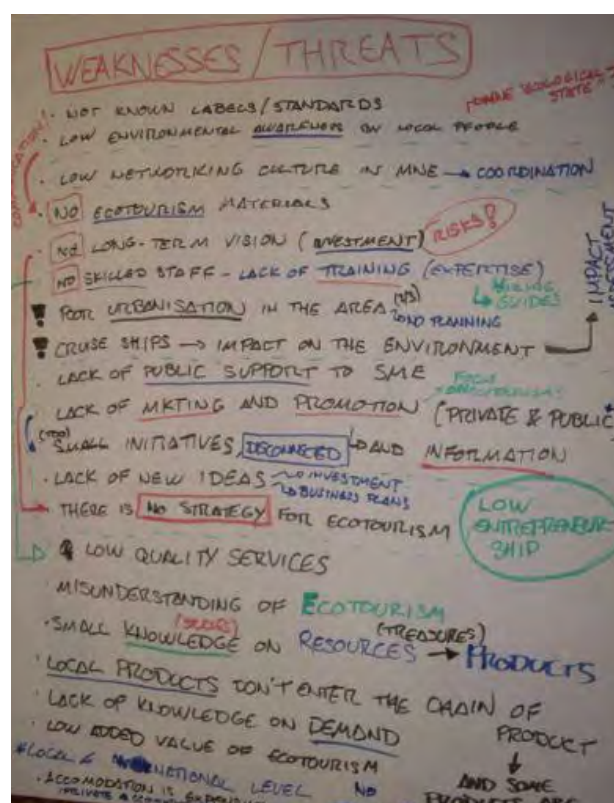 WEAKNESSES/THREATS
"ECOLOGICAL STATE"
· NOT KNOWN LABELS/STANDARDS
· LOW ENVIRONMENTAL AWARENESS ON LOCAL PEOPLE
· LOW NETWORKING CULTURE IN MNE → COORDINATION
· NO ECOTOURISM MATERIALS
· NO LONG-TERM VISION (INVESTMENT) RISKS!
· NO SKILLED STAFF - LACK OF TRAINING (EXPERTISE)
↳ HIKING GUIDES
! POOR URBANISATION IN THE AREA
↳ NO PLANNING
! CRUSE SHIPS → IMPACT ON THE ENVIRONMENT
IMPACT
· LACK OF PUBLIC SUPPORT TO SME
· LACK OF MKTING AND PROMOTION (PRIVATE & PUBLIC
(TOO)
SMALL INITIATIVES DISCONNECTED AND INFORMATION
· LACK OF NEW IDEAS → NO INVESTMENT
↳ BUSINESS PLANS
· THERE IS NO STRATEGY FOR ECOTOURISM
LOW ENTREPRENEUR SHIP
LOW QUALITY SERVICES
· MISUNDERSTANDING OF ECOTOURISM
· SMALL KNOWLEDGE ON RESOURCES (TREASURES) → PRODUCTS
· LOCAL PRODUCTS DON'T ENTER THE CHAIN OF PRODUCT
· LACK OF KNOWLEDGE ON DEMAND
· LOW ADDED VALUE OF ECOTOURISM
↓ AND SOME
LOCAL & NATIONAL LEVEL NO
· ACCOMODATION IS